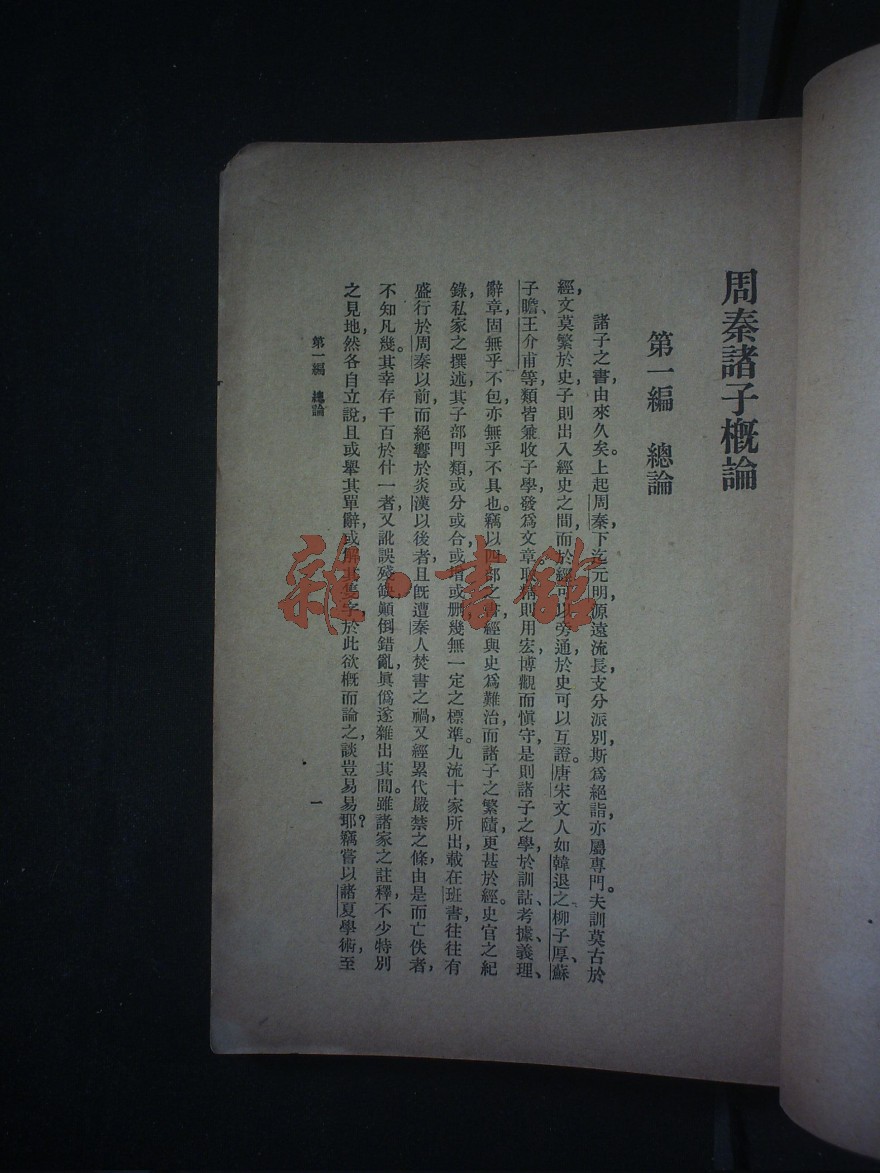 周秦諸子概論
第一編　總論
諸子之書，由來久矣。上起周秦，下迄元明，源遠流長，支分派別，斯爲絕詣，亦屬專門。夫訓莫古於
經，文莫繁於史，子則出入經史之間，而於經可以旁通，於史可以互證。唐宋文人如韓退之、柳子厚、蘇
子瞻、王介甫等，類皆兼收子學，發爲文章，取精則用宏，博觀而慎守，是則諸子之學，於訓詁、考據、義理、
辭章，固無乎不包，亦無乎不具也。竊以四部之書，經與史爲難治，而諸子之繁賾，更甚於經。史官之紀
錄，私家之撰述，其子部門類，或分或合，或增或刪，幾無一定之標準。九流十家所出，載在班書，往往有
盛行於周秦以前，而絕響於炎漢以後者，且旣遭秦人焚書之禍，又經累代嚴禁之條，由是而亡佚者，
不知凡幾。其幸存千百於什一者，又訛誤殘缺，顚倒錯亂，眞僞遂雜出其間。雖諸家之註釋，不少特別
之見地，然各自立說，且或舉其單辭，或解其隻字，於此欲概而論之，談豈易易耶？竊嘗以諸夏學術，至
第一編　總論
一
雜·書館